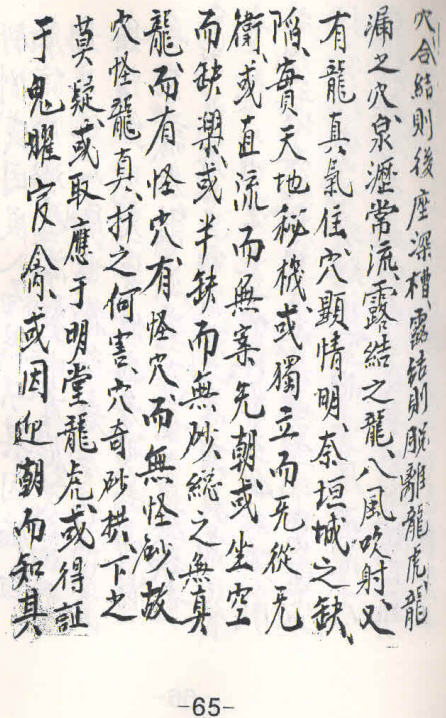 穴合結則後座深槽、露結則脫離龍虎、龍
漏之穴、泉瀝常流、露結之龍、八風吹射、又
有龍真氣住、穴顯情明、奈垣城之缺
陷、實天地秘機、或獨立而无從无
衛、或直流而無案无朝、或坐空
而缺樂、或半缺而無砂、總之無真
龍、而有怪穴、有怪穴、而無怪砂、故
穴怪龍真、扦之何害、穴奇砂拱、下之
莫疑、或取應于明堂龍虎、或得証
于鬼曜官禽、或因迎朝而知其
-65-